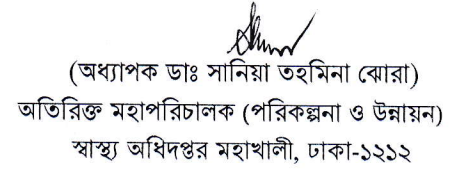 (অধ্যাপক ডাঃ সানিয়া তহমিনা ঝোরা)
অতিরিক্ত মহাপরিচালক (পরিকল্পনা ও উন্নায়ন)
স্বাস্থ্য অধিদপ্তর মহাখালী, ঢাকা-১২১২